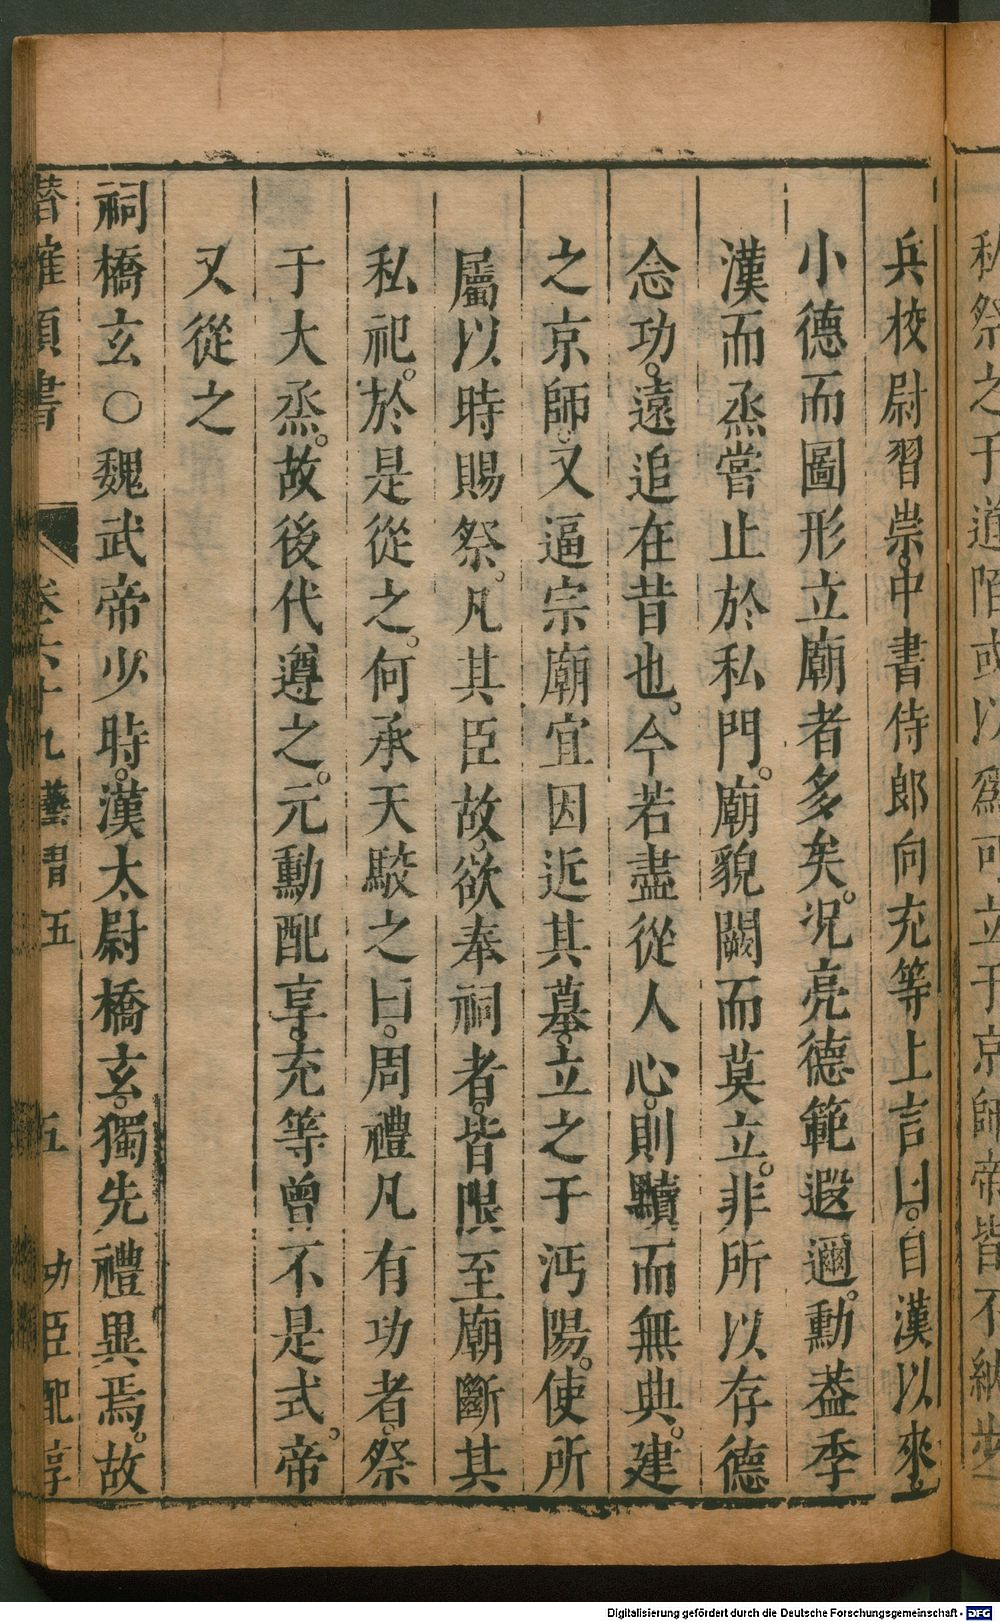 私祭之于道陌或以爲可立于京師帝皆不納步
兵校尉習崇。中書侍郎向充等上言曰。自漢以來。
小德而圖形立廟者多矣。况亮德範遐邇。勳葢季
漢而烝嘗止於私門。廟貌闕而莫立。非所以存德
念功。遠追在昔也。今若盡從人心。則黷而無典。建
之京師。又逼宗廟宜因近其墓。立之于沔陽。使所
屬以時賜祭。凡其臣故。欲奉祠者。皆限至廟斷其
私祀。於是從之。何承天駮之曰。周禮凡有功者。祭
于大烝。故後代遵之。元勳配享。充等曾不是式。帝
又從之
祠橋玄○魏武帝少時。漢太尉橋玄。獨先禮異焉。故
潜確類書 卷六十九藝習五 五 功臣配享
Digitalisierung gefördert durch die Deutsche Forschungsgemeinschaft - DFG